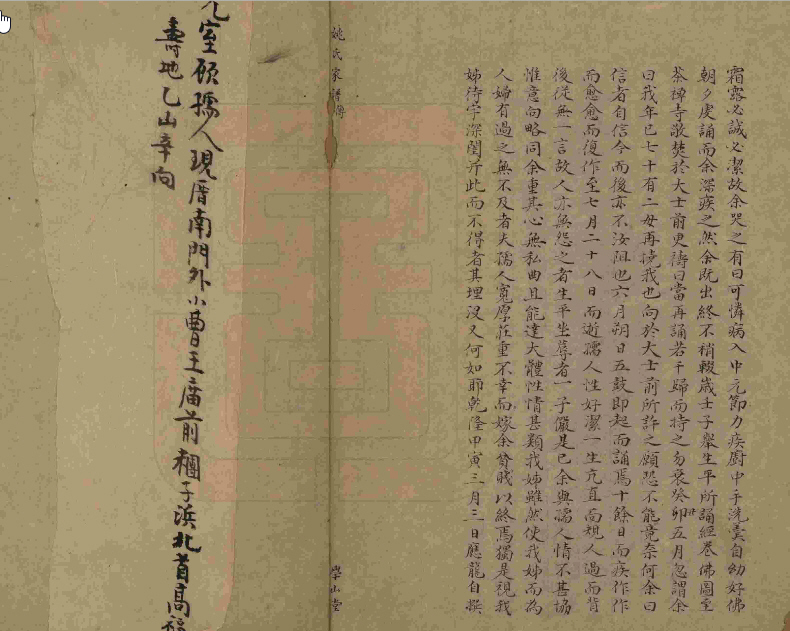 霜露必誠必潔故余哭之有曰可憐病入中元節力疾廚中手洗羹自幼好佛
朝夕虔誦而余深疾之然余既出終不稍輟歲壬子舉生平所誦經卷佛圖至
茶禪寺敬焚於大士前更禱曰當再誦若干歸而持之勿衰癸卯五月忽謂余
曰我年已七十有二毋再撓我也向於大士前所許之願恐不能竟奈何余曰
信者自信今而後亦不汝阻也六月朔日五鼓即起而誦焉十餘日而疾作作
而愈愈而復作至七月二十八日而逝孺人性好潔一生亢直面規人過而背
後從無一言故人亦無怨之者生平坐蓐者一子儼是已余與孺人情不甚協
惟意向略同余重其心無私曲且能達大體性情甚類我姊雖然使我姊而為
人婦有過之無不及者夫孺人寬厚莊重不幸而嫁余貧賤以終焉獨是視我
姊待字深閨并此而不得者其埋沒又何如耶乾隆甲寅三月三日應龍自撰
姚氏家譜傳
學山堂
元室顧孺人現厝南門外小曹王廟前櫚子浜北首高
壽地乙山辛向